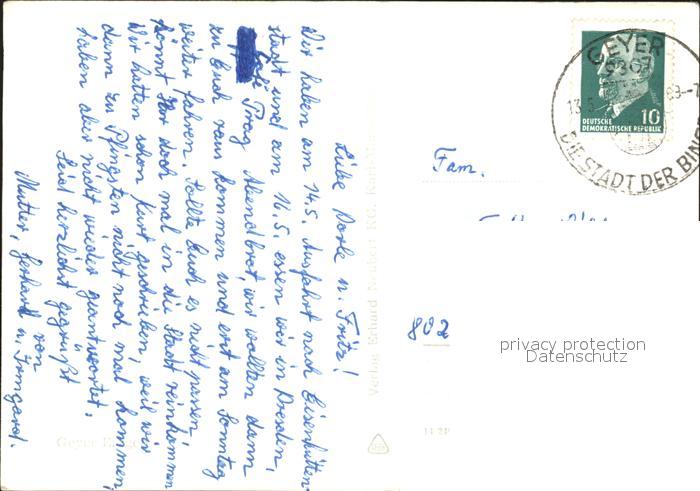 Liebe Dorle u. Fritz!
Wir haben am 14.5. Ausfahrt nach Eisenhütten-
stadt und am 16.5. essen wir in Dresden,
Prag Abendbrot, wir wollten dann
zu Euch raus kommen und erst am Sonntag
weiter fahren. Sollte Euch es nicht passen
könnt Ihr doch mal in die Stadt reinkommen
Wir hatten schon kurz geschrieben, weil wir
dann zu Pfingsten nicht noch mal kommen,
haben aber nicht wieder geantwortet.
Seid herzlichst gegrüßt
von
Mutter, Gerhard u. Irmgard.
Geyer
Verlag Erhard Neubert KG, Karl
GEYER
9303
13.5
69-7
DIE STADT DER BIN
10
DEUTSCHE
DEMOKRATISCHE REPUBLIK
Fam.
802
privacy protection
Datenschutz